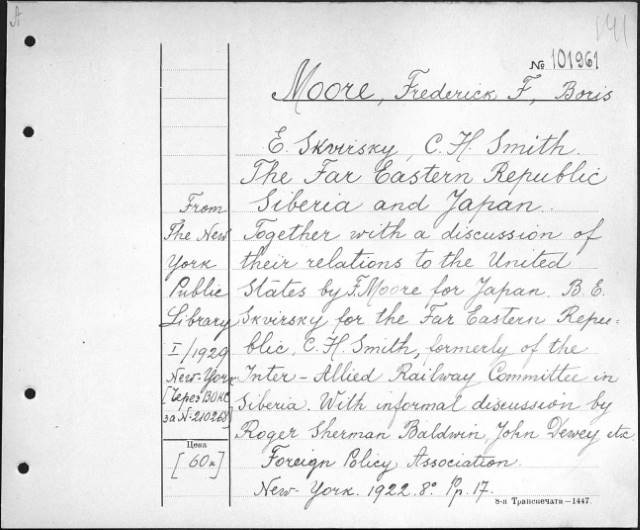 A
141
№ 101961
Moore, Frederick F, Boris
E. Skvirsky, C. H. Smith.
The Far Eastern Republic
Siberia and Japan.
Together with a discussion of
their relations to the United
States by F. Moore for Japan. B. E.
Skvirsky for the Far Eastern Repu-
blic. C. H. Smith, formerly of the
Inter-Allied Railway Committee in
Siberia. With informal discussion by
Roger Sherman Baldwin, John Dewey etc
Foreign Policy Association.
New-York. 1922. 8° Pp. 17.
From
The New
York
Public
Library
I/1929
New-York
[Через ВОКС
за №-210268]
Цена
[60к]
8-я Транспечати—1447.